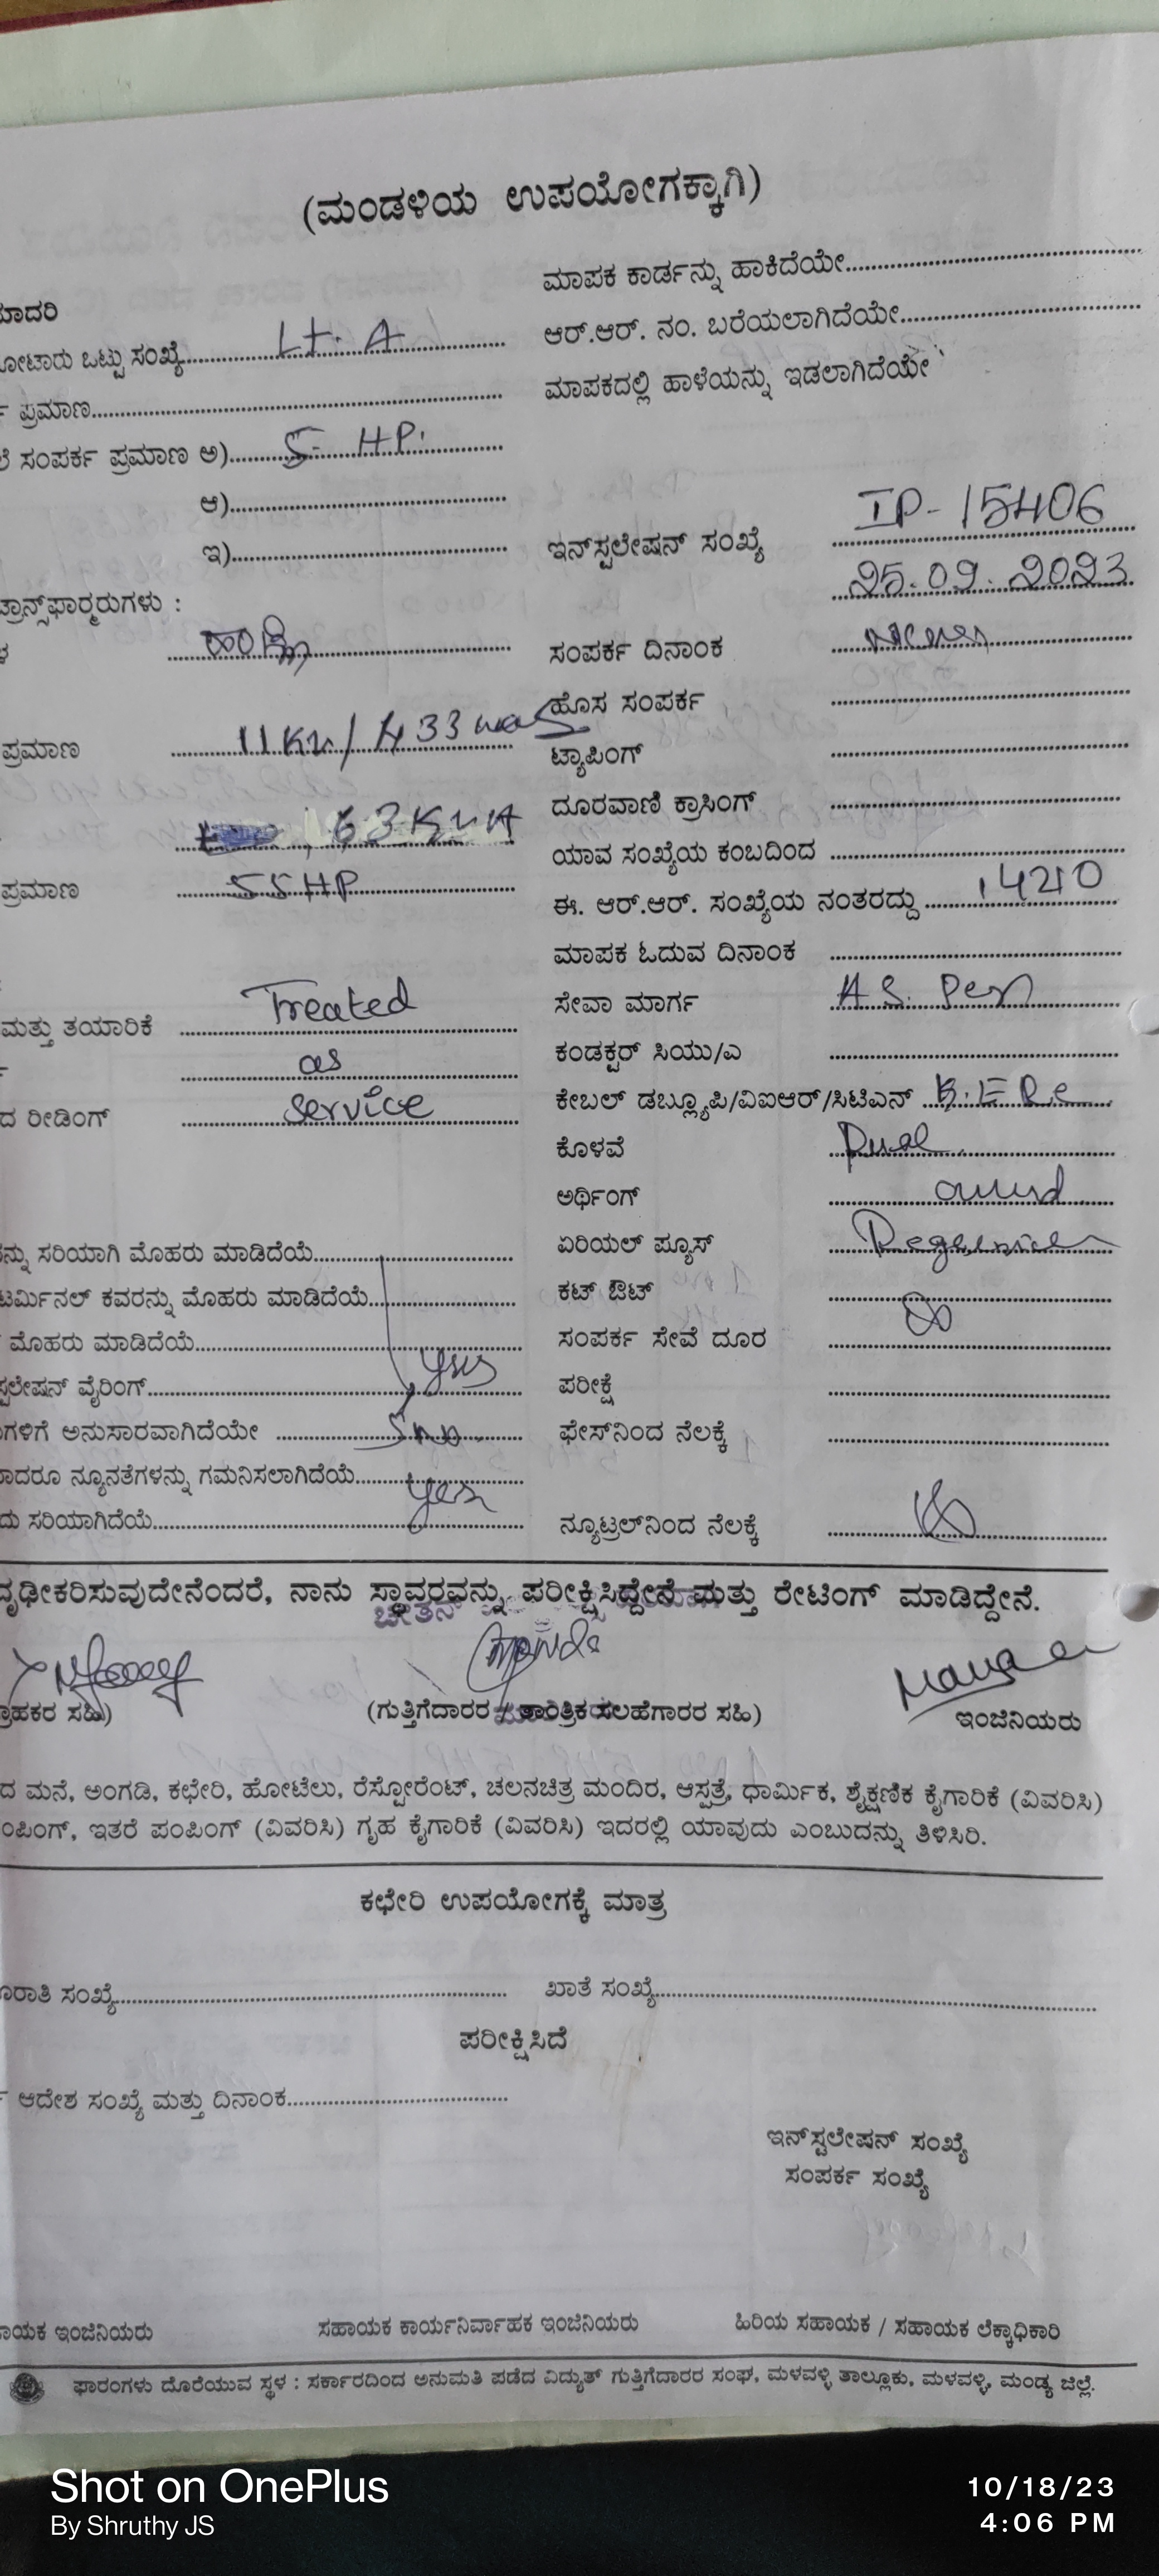 (ಮಂಡಳಿಯ ಉಪಯೋಗಕ್ಕಾಗಿ)
ಮಾದರಿ
ಮೋಟಾರು ಒಟ್ಟು ಸಂಖ್ಯೆ
ಪ್ರಮಾಣ
ಸಂಪರ್ಕ ಪ್ರಮಾಣ ಅ) 5 HP
ಆ)
ಇ)
ಟ್ರಾನ್ಸ್‌ಫಾರ್ಮರುಗಳು :
ಪ್ರಮಾಣ 11 KV / 433
63 KVA
ಪ್ರಮಾಣ 55 HP
ಮತ್ತು ತಯಾರಿಕೆ Treated
as
ದ ರೀಡಿಂಗ್ service
ನ್ನು ಸರಿಯಾಗಿ ಮೊಹರು ಮಾಡಿದೆಯೆ
ಟರ್ಮಿನಲ್ ಕವರನ್ನು ಮೊಹರು ಮಾಡಿದೆಯೆ
ಮೊಹರು ಮಾಡಿದೆಯೆ
ಸ್ಟಲೇಷನ್ ವೈರಿಂಗ್ yes
ಗಳಿಗೆ ಅನುಸಾರವಾಗಿದೆಯೇ
ಾದರೂ ನ್ಯೂನತೆಗಳನ್ನು ಗಮನಿಸಲಾಗಿದೆಯೆ
ದು ಸರಿಯಾಗಿದೆಯೆ yes
ಮಾಪಕ ಕಾರ್ಡನ್ನು ಹಾಕಿದೆಯೇ
ಆರ್.ಆರ್. ನಂ. ಬರೆಯಲಾಗಿದೆಯೇ
ಮಾಪಕದಲ್ಲಿ ಹಾಳೆಯನ್ನು ಇಡಲಾಗಿದೆಯೇ
ಇನ್‌ಸ್ಟಲೇಷನ್ ಸಂಖ್ಯೆ IP-15406
25.09.2023
ಸಂಪರ್ಕ ದಿನಾಂಕ
ಹೊಸ ಸಂಪರ್ಕ
ಟ್ಯಾಪಿಂಗ್
ದೂರವಾಣಿ ಕ್ರಾಸಿಂಗ್
ಯಾವ ಸಂಖ್ಯೆಯ ಕಂಬದಿಂದ
ಈ. ಆರ್.ಆರ್. ಸಂಖ್ಯೆಯ ನಂತರದ್ದು 14210
ಮಾಪಕ ಓದುವ ದಿನಾಂಕ
ಸೇವಾ ಮಾರ್ಗ AS. Per
ಕಂಡಕ್ಟರ್ ಸಿಯು/ಎ
ಕೇಬಲ್ ಡಬ್ಲ್ಯೂಪಿ/ವಿಐಆರ್/ಸಿಟಿಎನ್ K.ERC
ಕೊಳವೆ
ಅರ್ಥಿಂಗ್
ಏರಿಯಲ್ ಪ್ಯೂಸ್
ಕಟ್ ಔಟ್
ಸಂಪರ್ಕ ಸೇವೆ ದೂರ
ಪರೀಕ್ಷೆ
ಫೇಸ್‌ನಿಂದ ನೆಲಕ್ಕೆ
ನ್ಯೂಟ್ರಲ್‌ನಿಂದ ನೆಲಕ್ಕೆ
ದೃಢೀಕರಿಸುವುದೇನೆಂದರೆ, ನಾನು ಸ್ಥಾವರವನ್ನು ಪರೀಕ್ಷಿಸಿದ್ದೇನೆ ಮತ್ತು ರೇಟಿಂಗ್ ಮಾಡಿದ್ದೇನೆ.
ಚೇತನ್
ಗ್ರಾಹಕರ ಸಹಿ) (ಗುತ್ತಿಗೆದಾರರ / ತಾಂತ್ರಿಕ ಸಲಹೆಗಾರರ ಸಹಿ) ಇಂಜಿನಿಯರು
ದ ಮನೆ, ಅಂಗಡಿ, ಕಛೇರಿ, ಹೋಟೆಲು, ರೆಸ್ಟೋರೆಂಟ್, ಚಲನಚಿತ್ರ ಮಂದಿರ, ಆಸ್ಪತ್ರೆ, ಧಾರ್ಮಿಕ, ಶೈಕ್ಷಣಿಕ ಕೈಗಾರಿಕೆ (ವಿವರಿಸಿ)
ಂಪಿಂಗ್, ಇತರೆ ಪಂಪಿಂಗ್ (ವಿವರಿಸಿ) ಗೃಹ ಕೈಗಾರಿಕೆ (ವಿವರಿಸಿ) ಇದರಲ್ಲಿ ಯಾವುದು ಎಂಬುದನ್ನು ತಿಳಿಸಿರಿ.
ಕಛೇರಿ ಉಪಯೋಗಕ್ಕೆ ಮಾತ್ರ
ೂರಾತಿ ಸಂಖ್ಯೆ ಖಾತೆ ಸಂಖ್ಯೆ
ಪರೀಕ್ಷಿಸಿದೆ
ಆದೇಶ ಸಂಖ್ಯೆ ಮತ್ತು ದಿನಾಂಕ
ಇನ್‌ಸ್ಟಲೇಷನ್ ಸಂಖ್ಯೆ
ಸಂಪರ್ಕ ಸಂಖ್ಯೆ
ಾಯಕ ಇಂಜಿನಿಯರು ಸಹಾಯಕ ಕಾರ್ಯನಿರ್ವಾಹಕ ಇಂಜಿನಿಯರು ಹಿರಿಯ ಸಹಾಯಕ / ಸಹಾಯಕ ಲೆಕ್ಕಾಧಿಕಾರಿ
ಫಾರಂಗಳು ದೊರೆಯುವ ಸ್ಥಳ : ಸರ್ಕಾರದಿಂದ ಅನುಮತಿ ಪಡೆದ ವಿದ್ಯುತ್ ಗುತ್ತಿಗೆದಾರರ ಸಂಘ, ಮಳವಳ್ಳಿ ತಾಲ್ಲೂಕು, ಮಳವಳ್ಳಿ, ಮಂಡ್ಯ ಜಿಲ್ಲೆ.
Shot on OnePlus
By Shruthy JS
10/18/23
4:06 PM